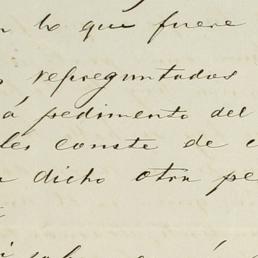 lo que fuere
repreguntados
á pedimento del
les conste de
dicho otra pe